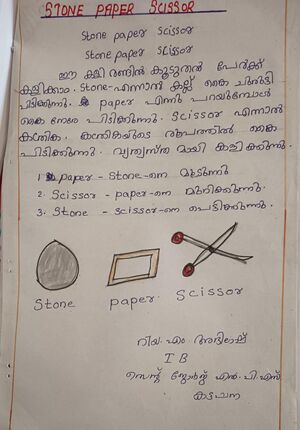 STONE PAPER SCISSOR
Stone paper Scissor
Stone paper Scissor
ഈ കളി രണ്ടിൽ കൂടുതൽ പേർക്ക്
കളിക്കാം. Stone-എന്നാൽ കല്ല് കൈ ചുരുട്ടി
പിടിക്കുന്നു. paper എന്നു പറയുമ്പോൾ
കൈ നേരെ പിടിക്കുന്നു. Scissor എന്നാൽ
കത്രിക. കത്രികയുടെ രൂപത്തിൽ കൈ
പിടിക്കുന്നു. വ്യത്യസ്ത മായി കളിക്കുന്നു.
1. paper - Stone -നെ മൂടുന്നു
2. Scissor - paper-നെ മുറിക്കുന്നു.
3. Stone - scissor-നെ പൊട്ടിക്കുന്നു.
Stone paper Scissor
റിയ എം അഭിലാഷ്
I B
സെന്റ് ജോർജ്ജ് എൽ.പി.എസ്
കാട്ടചന